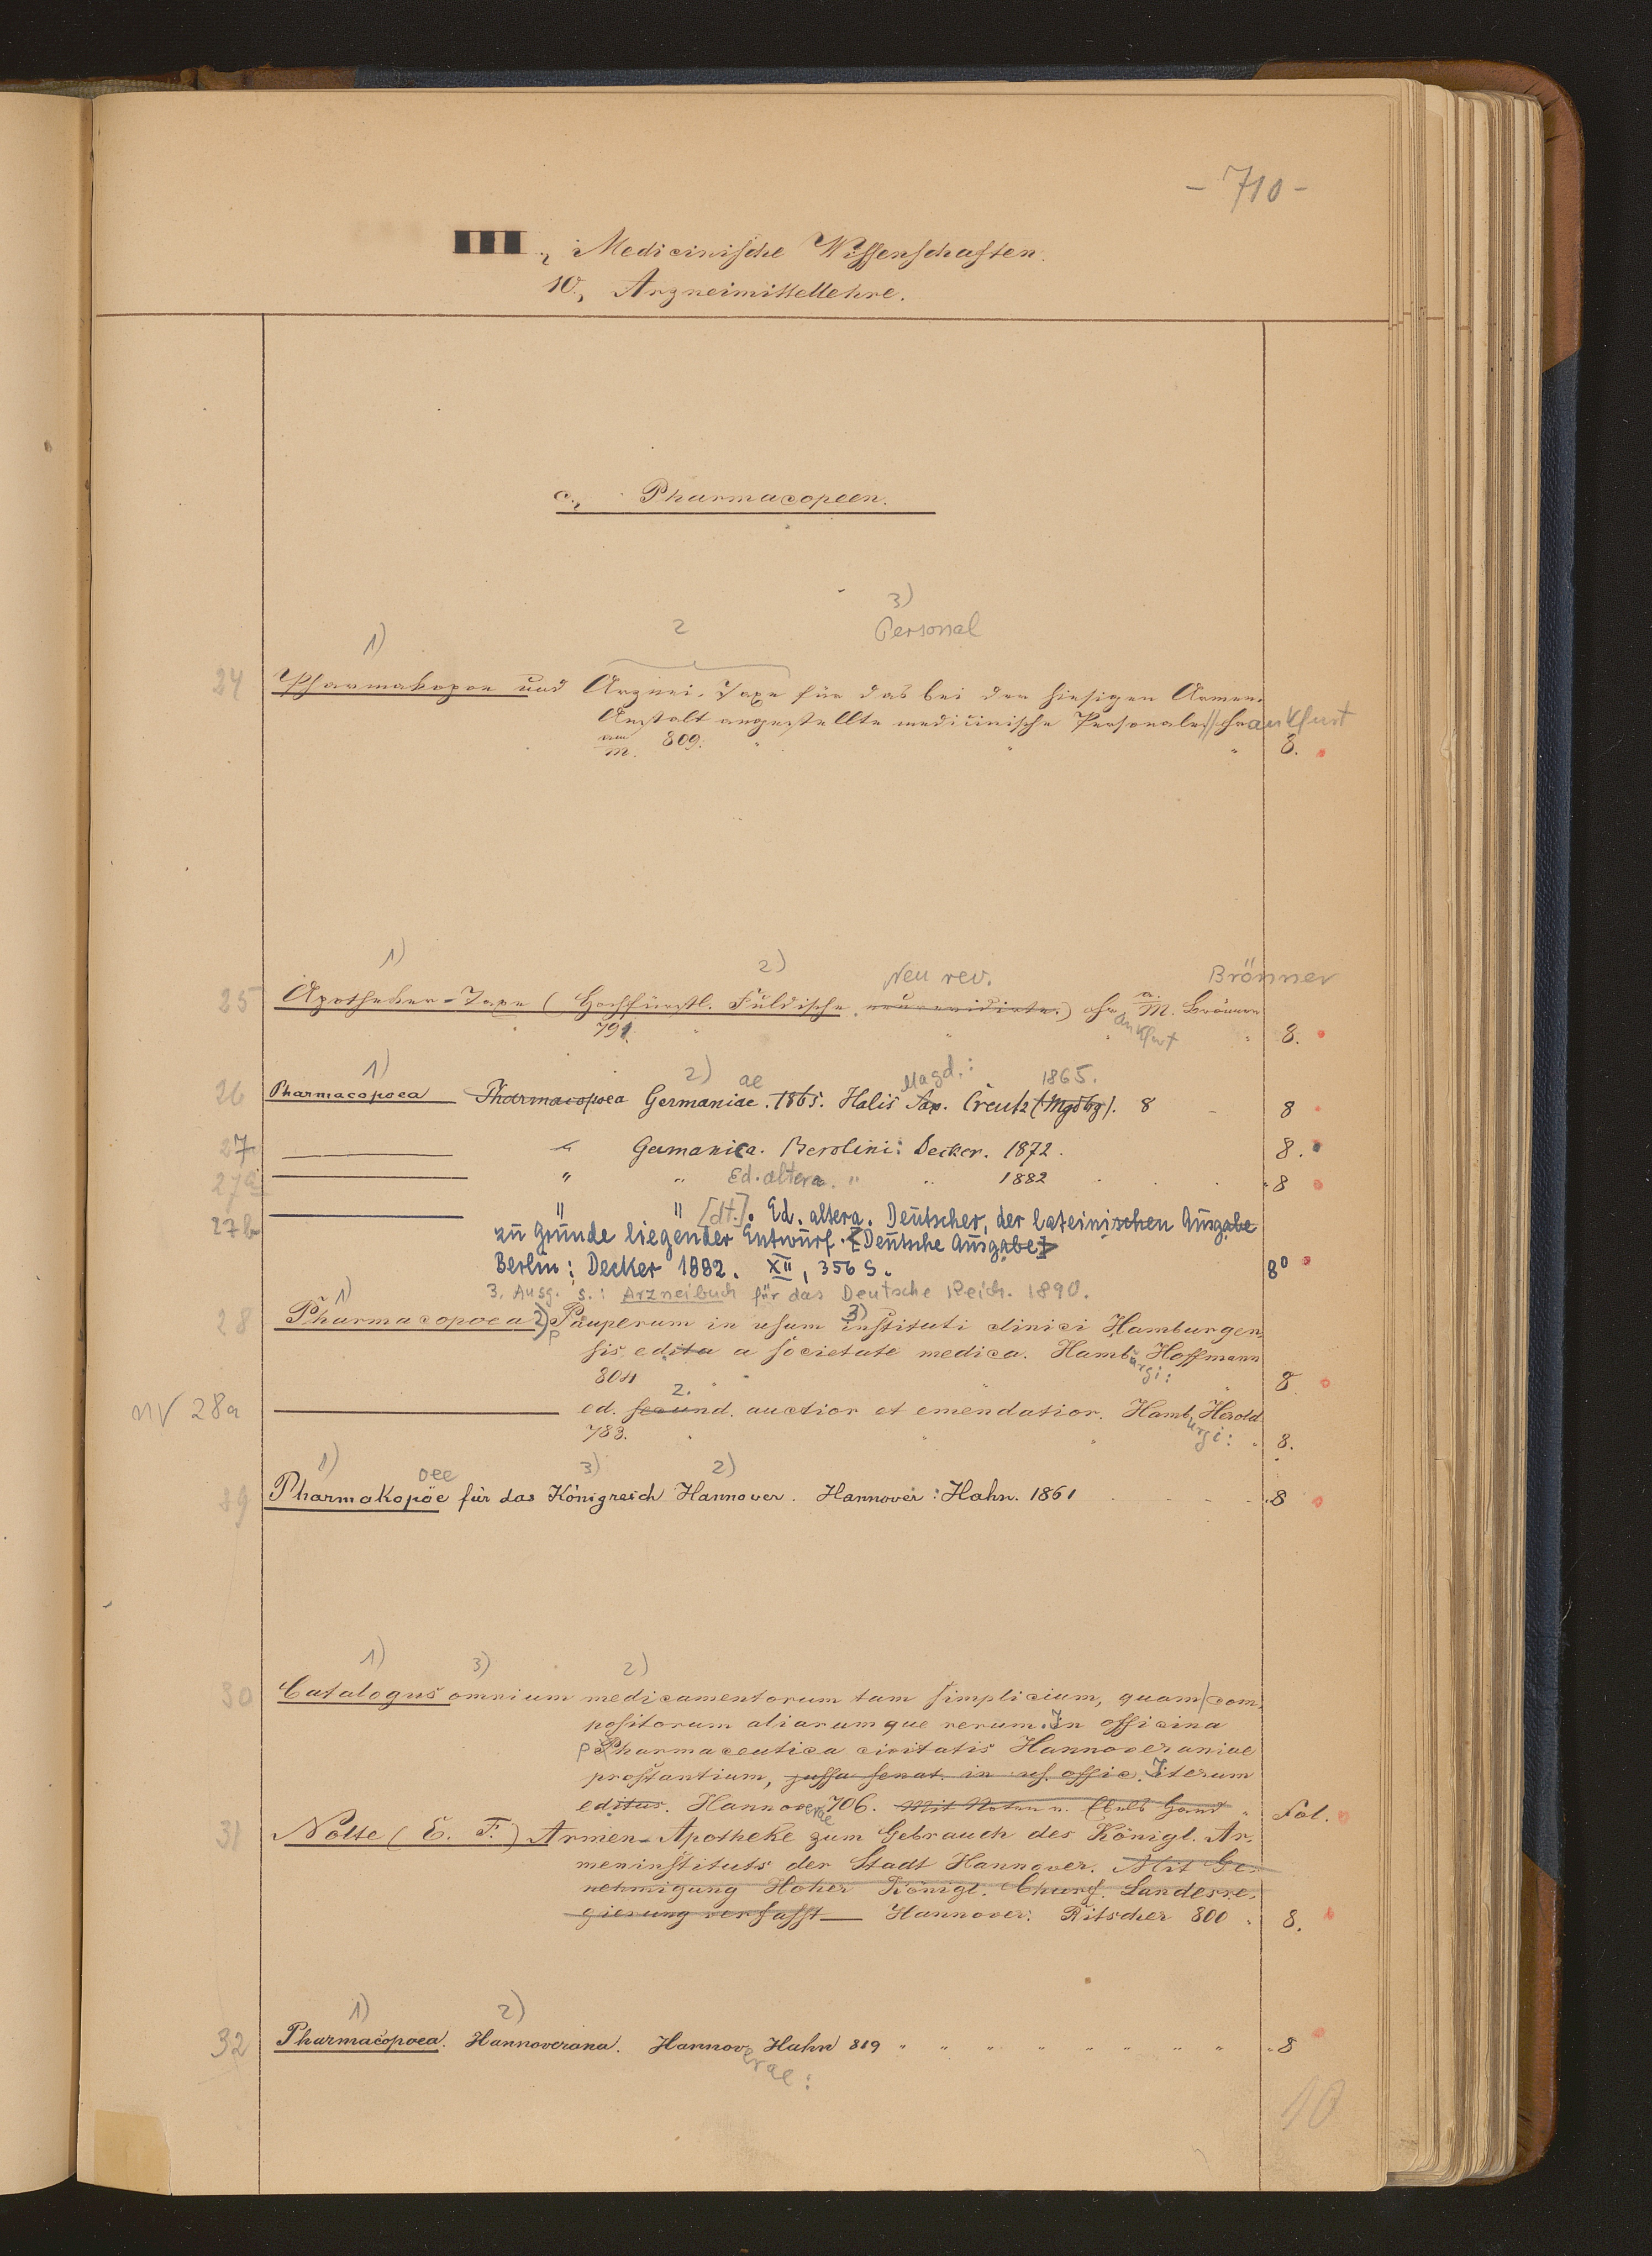 - 710 -
III, Medicinische Wissenschaften.
10., Arzneimittellehre.
c., Pharmacopeen.
3)
1) 2 Personal
24 Pharmakopoe und Arznei-Taxe für das bei der hiesigen Armen-
Anstalt angestellte medicinische Personale // Frankfurt
M. 809. " " " 8.
1) 2) Neu rev. Brönner
25 Apotheker-Taxe (Hochfürstl. Fuldische neurevidirte.) Frankfurt a. M. Brönner
791. " " " 8.
1) 2) ae Magd.: 1865.
26 Pharmacopoea Pharmacopoea Germaniae. 1865. Halis Sax. Creutz (Mgdbg). 8 - 8
27 " Germanica. Berolini: Decker. 1872. 8.
27a " " Ed. altera. " " 1882 . . . 8
27b " " [dt.]. Ed. altera. Deutscher, der lateinischen Ausgabe
zu Grunde liegender Entwurf. [Deutsche Ausgabe]
Berlin: Decker 1882. XII, 356 S. 8°
3. Ausg. s.: Arzneibuch für das Deutsche Reich. 1890.
1) 3)
28 Pharmacopoea 2) Pauperum in usum instituti clinici Hamburgen-
sis, edita a societate medica. Hamburgi: Hoffmann
804 " " " 8.
2.
NV 28a ed. secund. auctior et emendatior. Hamburgi: Herold
783. " " " 8.
1) oee 3) 2)
29 Pharmakopöe für das Königreich Hannover. Hannover: Hahn. 1861 8
1) 3) 2)
30 Catalogus omnium medicamentorum tam simplicium, quam com-
positorum aliarumque rerum. In officina
Pharmaceutica civitatis Hannoveraniae
prostantium, jussu senat. in us. offic. Iterum
editus. Hannoverae 706. Mit Noten v. Ebels Hand " Fol.
31 Nolte (E. F.) Armen-Apotheke zum Gebrauch des Königl. Ar-
meninstituts der Stadt Hannover. Mit Ge-
nehmigung Hoher Königl. Churf. Landesre-
gierung verfasst Hannover: Ritscher 800 " 8.
1) 2)
32 Pharmacopoea. Hannoverana. Hannoverae: Hahn 819 " " " " " " " " 8
10